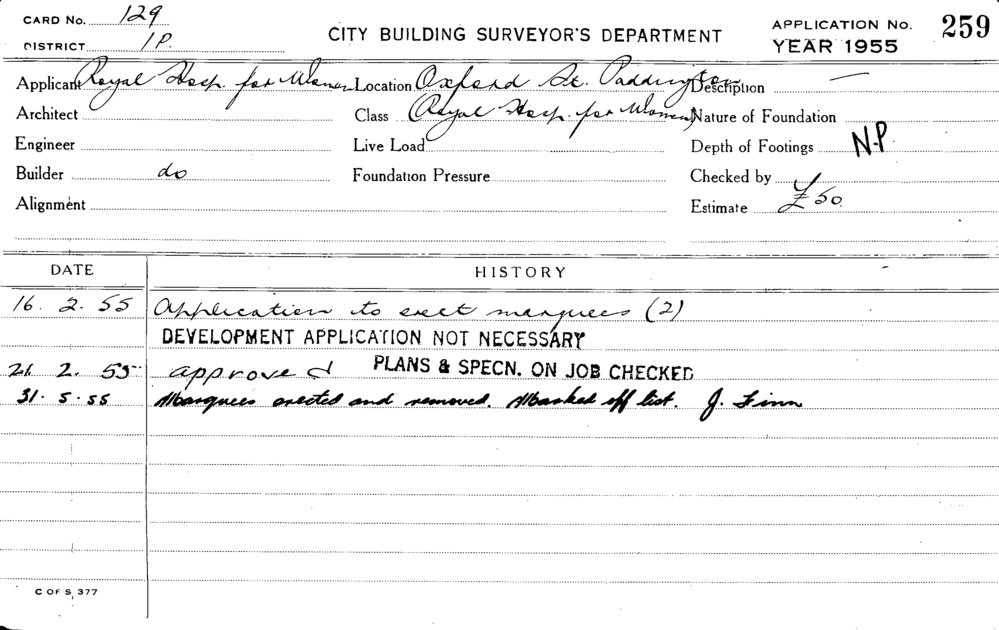 CARD No. 129 CITY BUILDING SURVEYOR'S DEPARTMENT APPLICATION No. 259
DISTRICT 1P. YEAR 1955
Applicant Royal Hosp. for Women Location Oxford St. Paddington Description —
Architect Class (Royal Hosp. for Women) Nature of Foundation
Engineer Live Load Depth of Footings N.P
Builder do Foundation Pressure Checked by
Alignment Estimate £50
DATE HISTORY
16. 2. 55 Application to erect marquees (2)
DEVELOPMENT APPLICATION NOT NECESSARY
21. 2. 55 approved PLANS & SPECN. ON JOB CHECKED
31. 5. 55 Marquees erected and removed. Marked off list. J. Finn
C OF S, 377